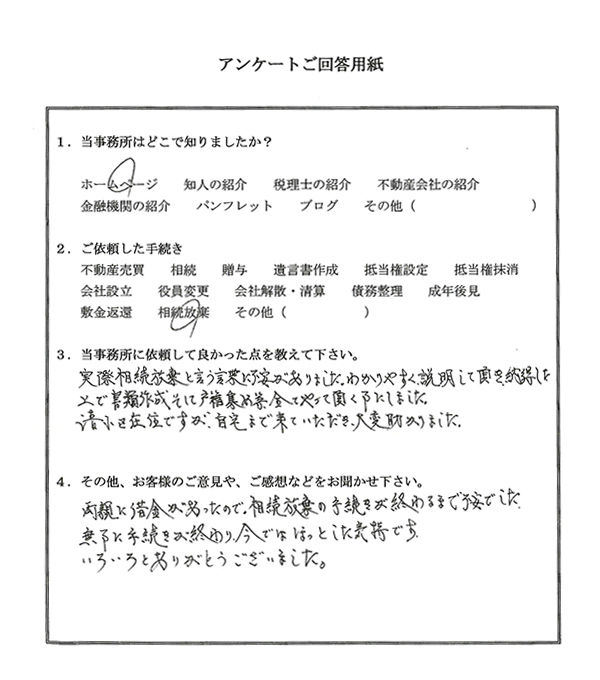 アンケートご回答用紙
1．当事務所はどこで知りましたか？
ホームページ 知人の紹介 税理士の紹介 不動産会社の紹介
金融機関の紹介 パンフレット ブログ その他（ ）
2．ご依頼した手続き
不動産売買 相続 贈与 遺言書作成 抵当権設定 抵当権抹消
会社設立 役員変更 会社解散・清算 債務整理 成年後見
敷金返還 相続放棄 その他（ ）
3．当事務所に依頼して良かった点を教えて下さい。
実際相続放棄と言う言葉に不安がありました。わかりやすく説明して頂き、納得した
上で書類作成そして戸籍集め等、全てやって頂く事にしました。
在住ですが、自宅まで来ていただき、大変助かりました。
4．その他、お客様のご意見や、ご感想などをお聞かせ下さい。
両親に借金があったので、相続放棄の手続きが終わるまで不安でした。
無事に手続きが終わり、今ではほっとした気持です。
いろいろとありがとうございました。